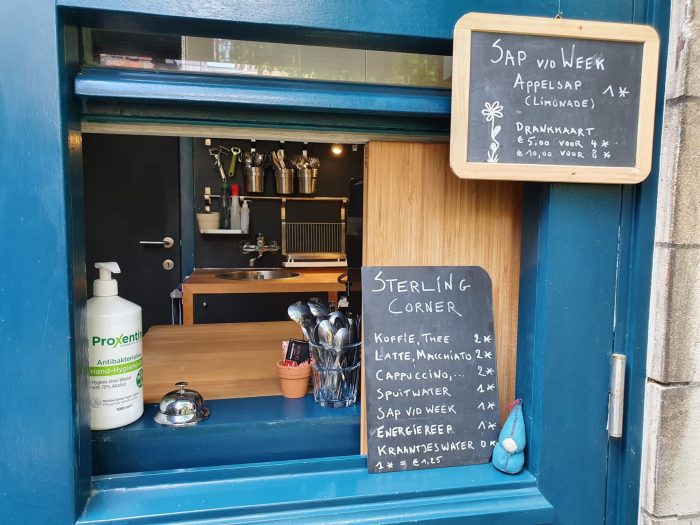 SAP V/D WEEK
APPELSAP 1*
(LIMONADE)
DRANKKAART
€ 5,00 VOOR 4*
€ 10,00 VOOR 8*
STERLING
CORNER
KOFFIE, THEE 2*
LATTE, MACCHIATO 2*
CAPPUCCINO,... 2*
SPUITWATER 1*
SAP V/D WEEK 1*
ENERGIEREEP 1*
KRAANTJESWATER 0*
1* = €1,25
ProXenti
Antibakteriell
Hand-Hygiene
1000 ml